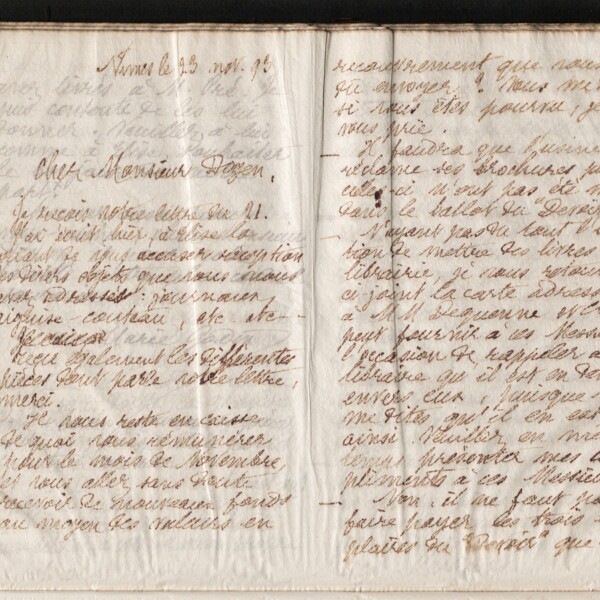 Nîmes le 23 nov. 93
Cher Monsieur Doyen,
Je reçois votre lettre du 21.
J'ai écrit hier, à
priant de vous accuser réception
des divers objets que vous nous
avez adressés : journaux,
aiguise-couteau, etc etc
reçu également les différentes
pièces dont parle votre lettre,
merci.
Il vous reste en caisse
de quoi vous rémunérer
pour le mois de Novembre,
et vous aller sans doute
recevoir de nouveaux fonds
au moyen des valeurs en
recouvrement que vous
dû envoyer ? Vous me
si vous êtes pourvu, je
vous prie.
— Il faudra que l'usine
réclame ses brochures
celles-ci n'ont pas été
dans le ballot du "Devoir
— N'ayant pas du tout l'
tion de mettre des livres
librairie, je vous retourne
ci-joint la carte adressée
à M.M. Dequenne et
peut fournir à ces Messi
l'occasion de rappeler
libraire qu'il est en
envers eux, puisque
me dites qu'il en est
ainsi. Veuillez en
présenter mes
pliments à ces Messieu
— Non, il ne faut pas
faire payer les trois
plaires du "Devoir" que